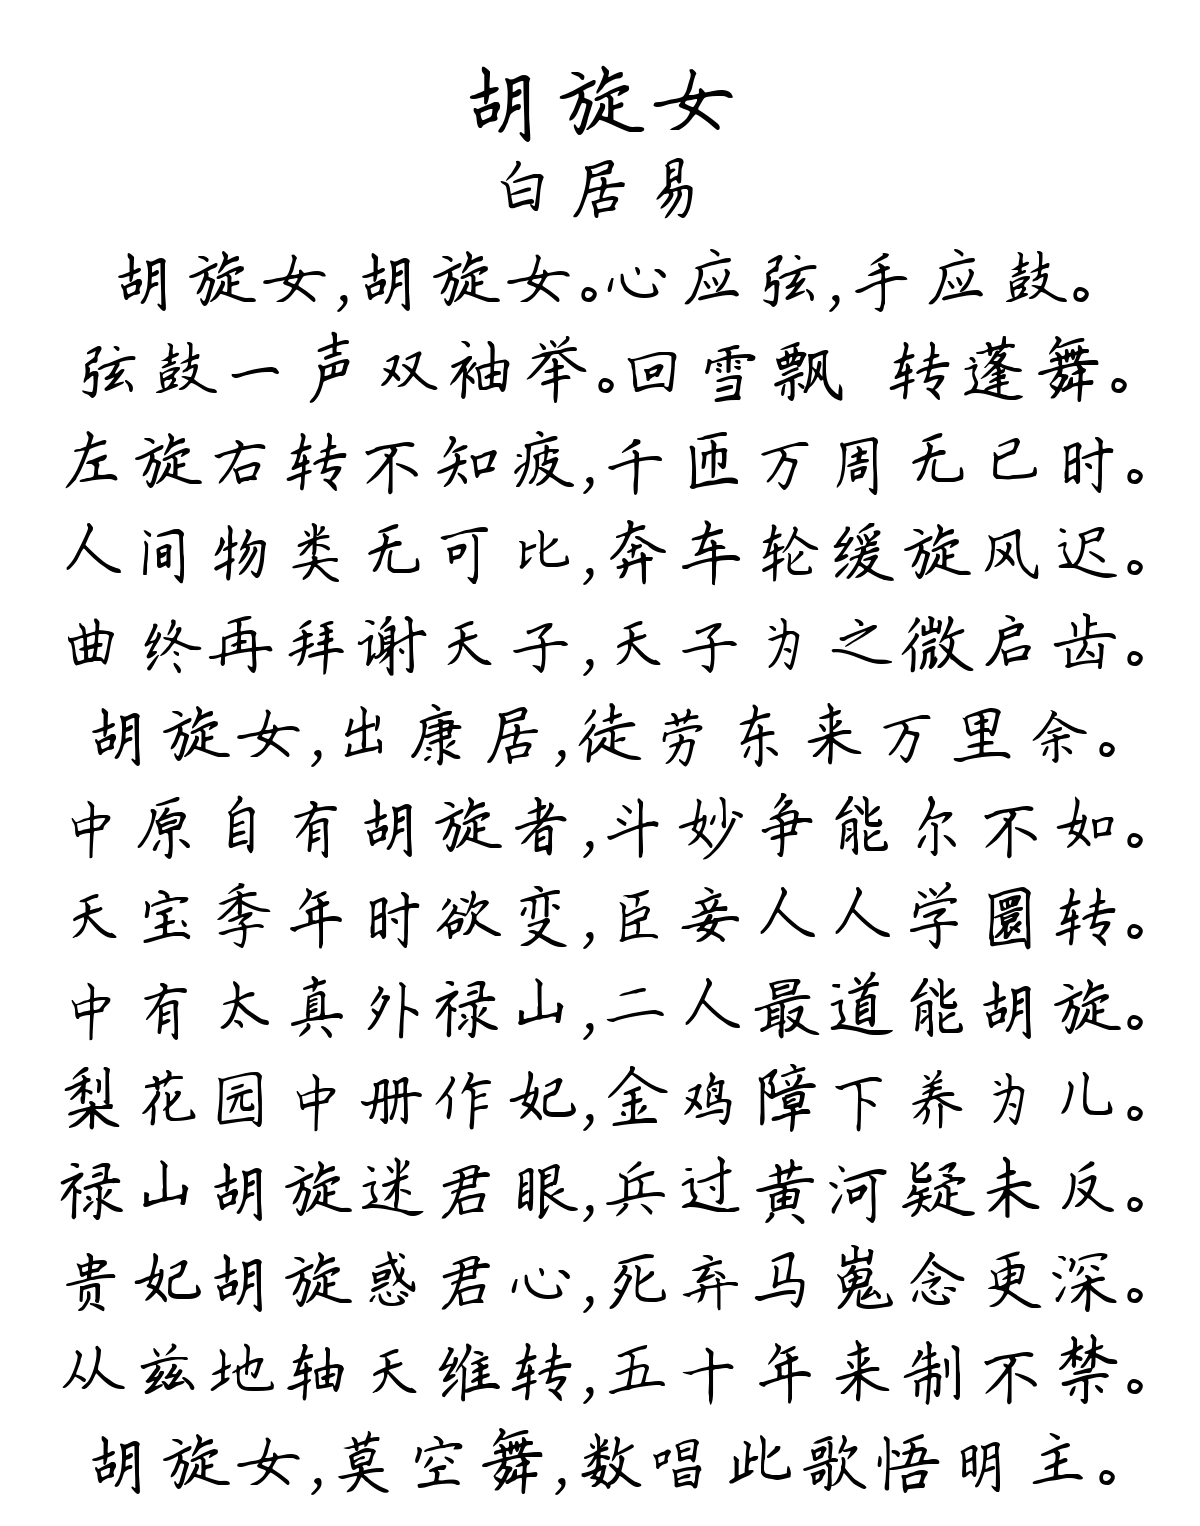 胡旋女
白居易
胡旋女,胡旋女。心应弦,手应鼓。
弦鼓一声双袖举。回雪飘 转蓬舞。
左旋右转不知疲,千匝万周无已时。
人间物类无可比,奔车轮缓旋风迟。
曲终再拜谢天子,天子为之微启齿。
胡旋女,出康居,徒劳东来万里余。
中原自有胡旋者,斗妙争能尔不如。
天宝季年时欲变,臣妾人人学圜转。
中有太真外禄山,二人最道能胡旋。
梨花园中册作妃,金鸡障下养为儿。
禄山胡旋迷君眼,兵过黄河疑未反。
贵妃胡旋惑君心,死弃马嵬念更深。
从兹地轴天维转,五十年来制不禁。
胡旋女,莫空舞,数唱此歌悟明主。